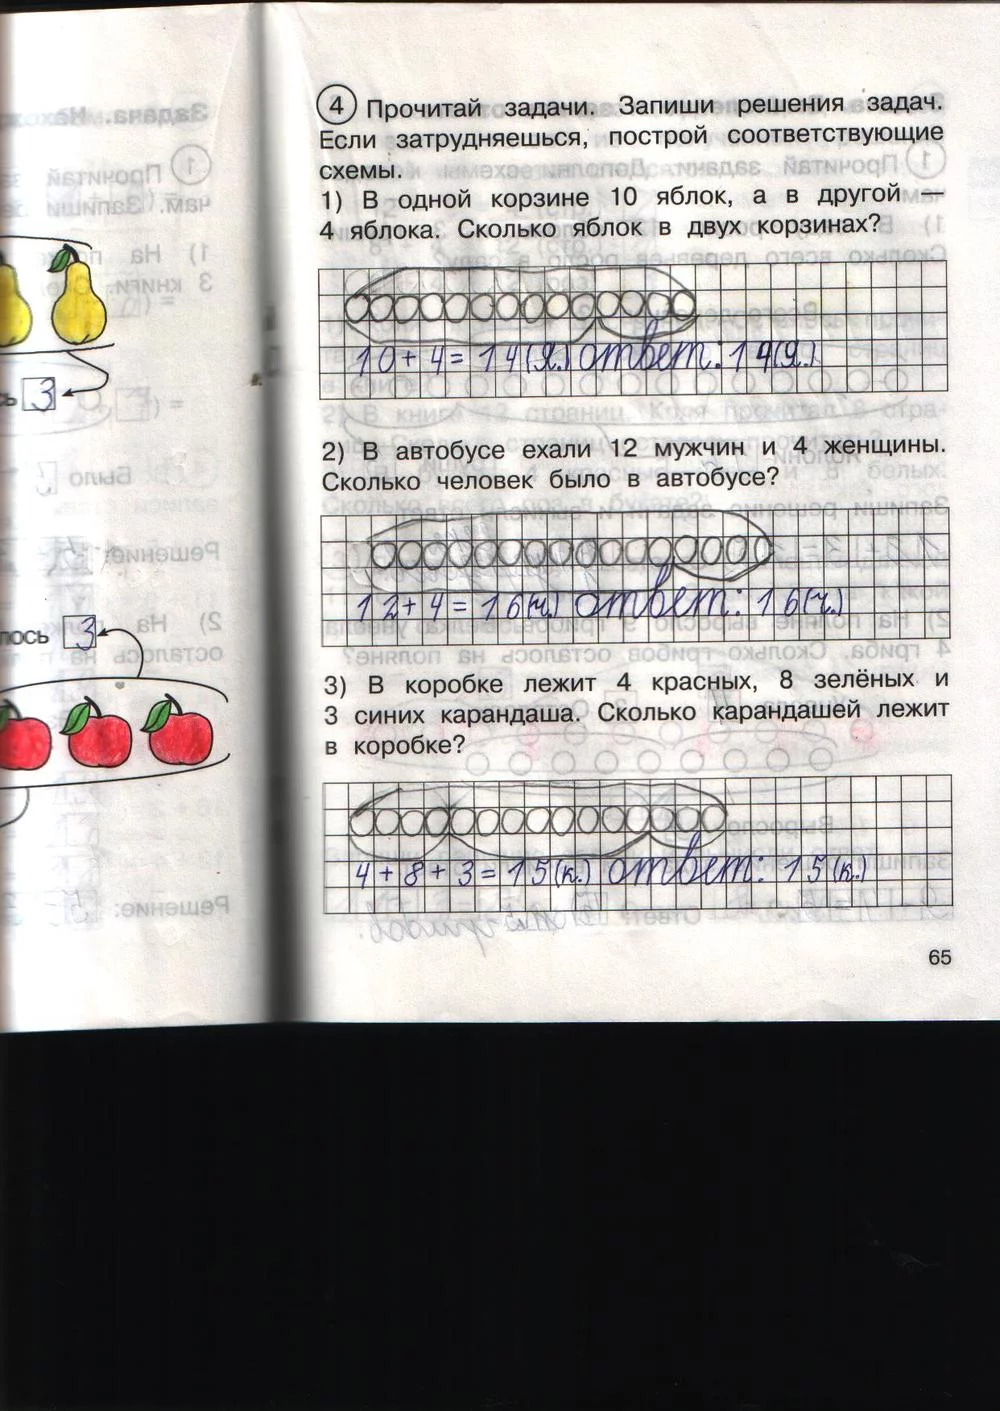 сь 3
лось 3
4 Прочитай задачи. Запиши решения задач.
Если затрудняешься, построй соответствующие
схемы.
1) В одной корзине 10 яблок, а в другой —
4 яблока. Сколько яблок в двух корзинах?
10+4=14(Я.) ответ: 14(Я.)
2) В автобусе ехали 12 мужчин и 4 женщины.
Сколько человек было в автобусе?
12+4=16(ч.) ответ: 16(ч.)
3) В коробке лежит 4 красных, 8 зелёных и
3 синих карандаша. Сколько карандашей лежит
в коробке?
4+8+3=15(к.) ответ: 15(к.)
65